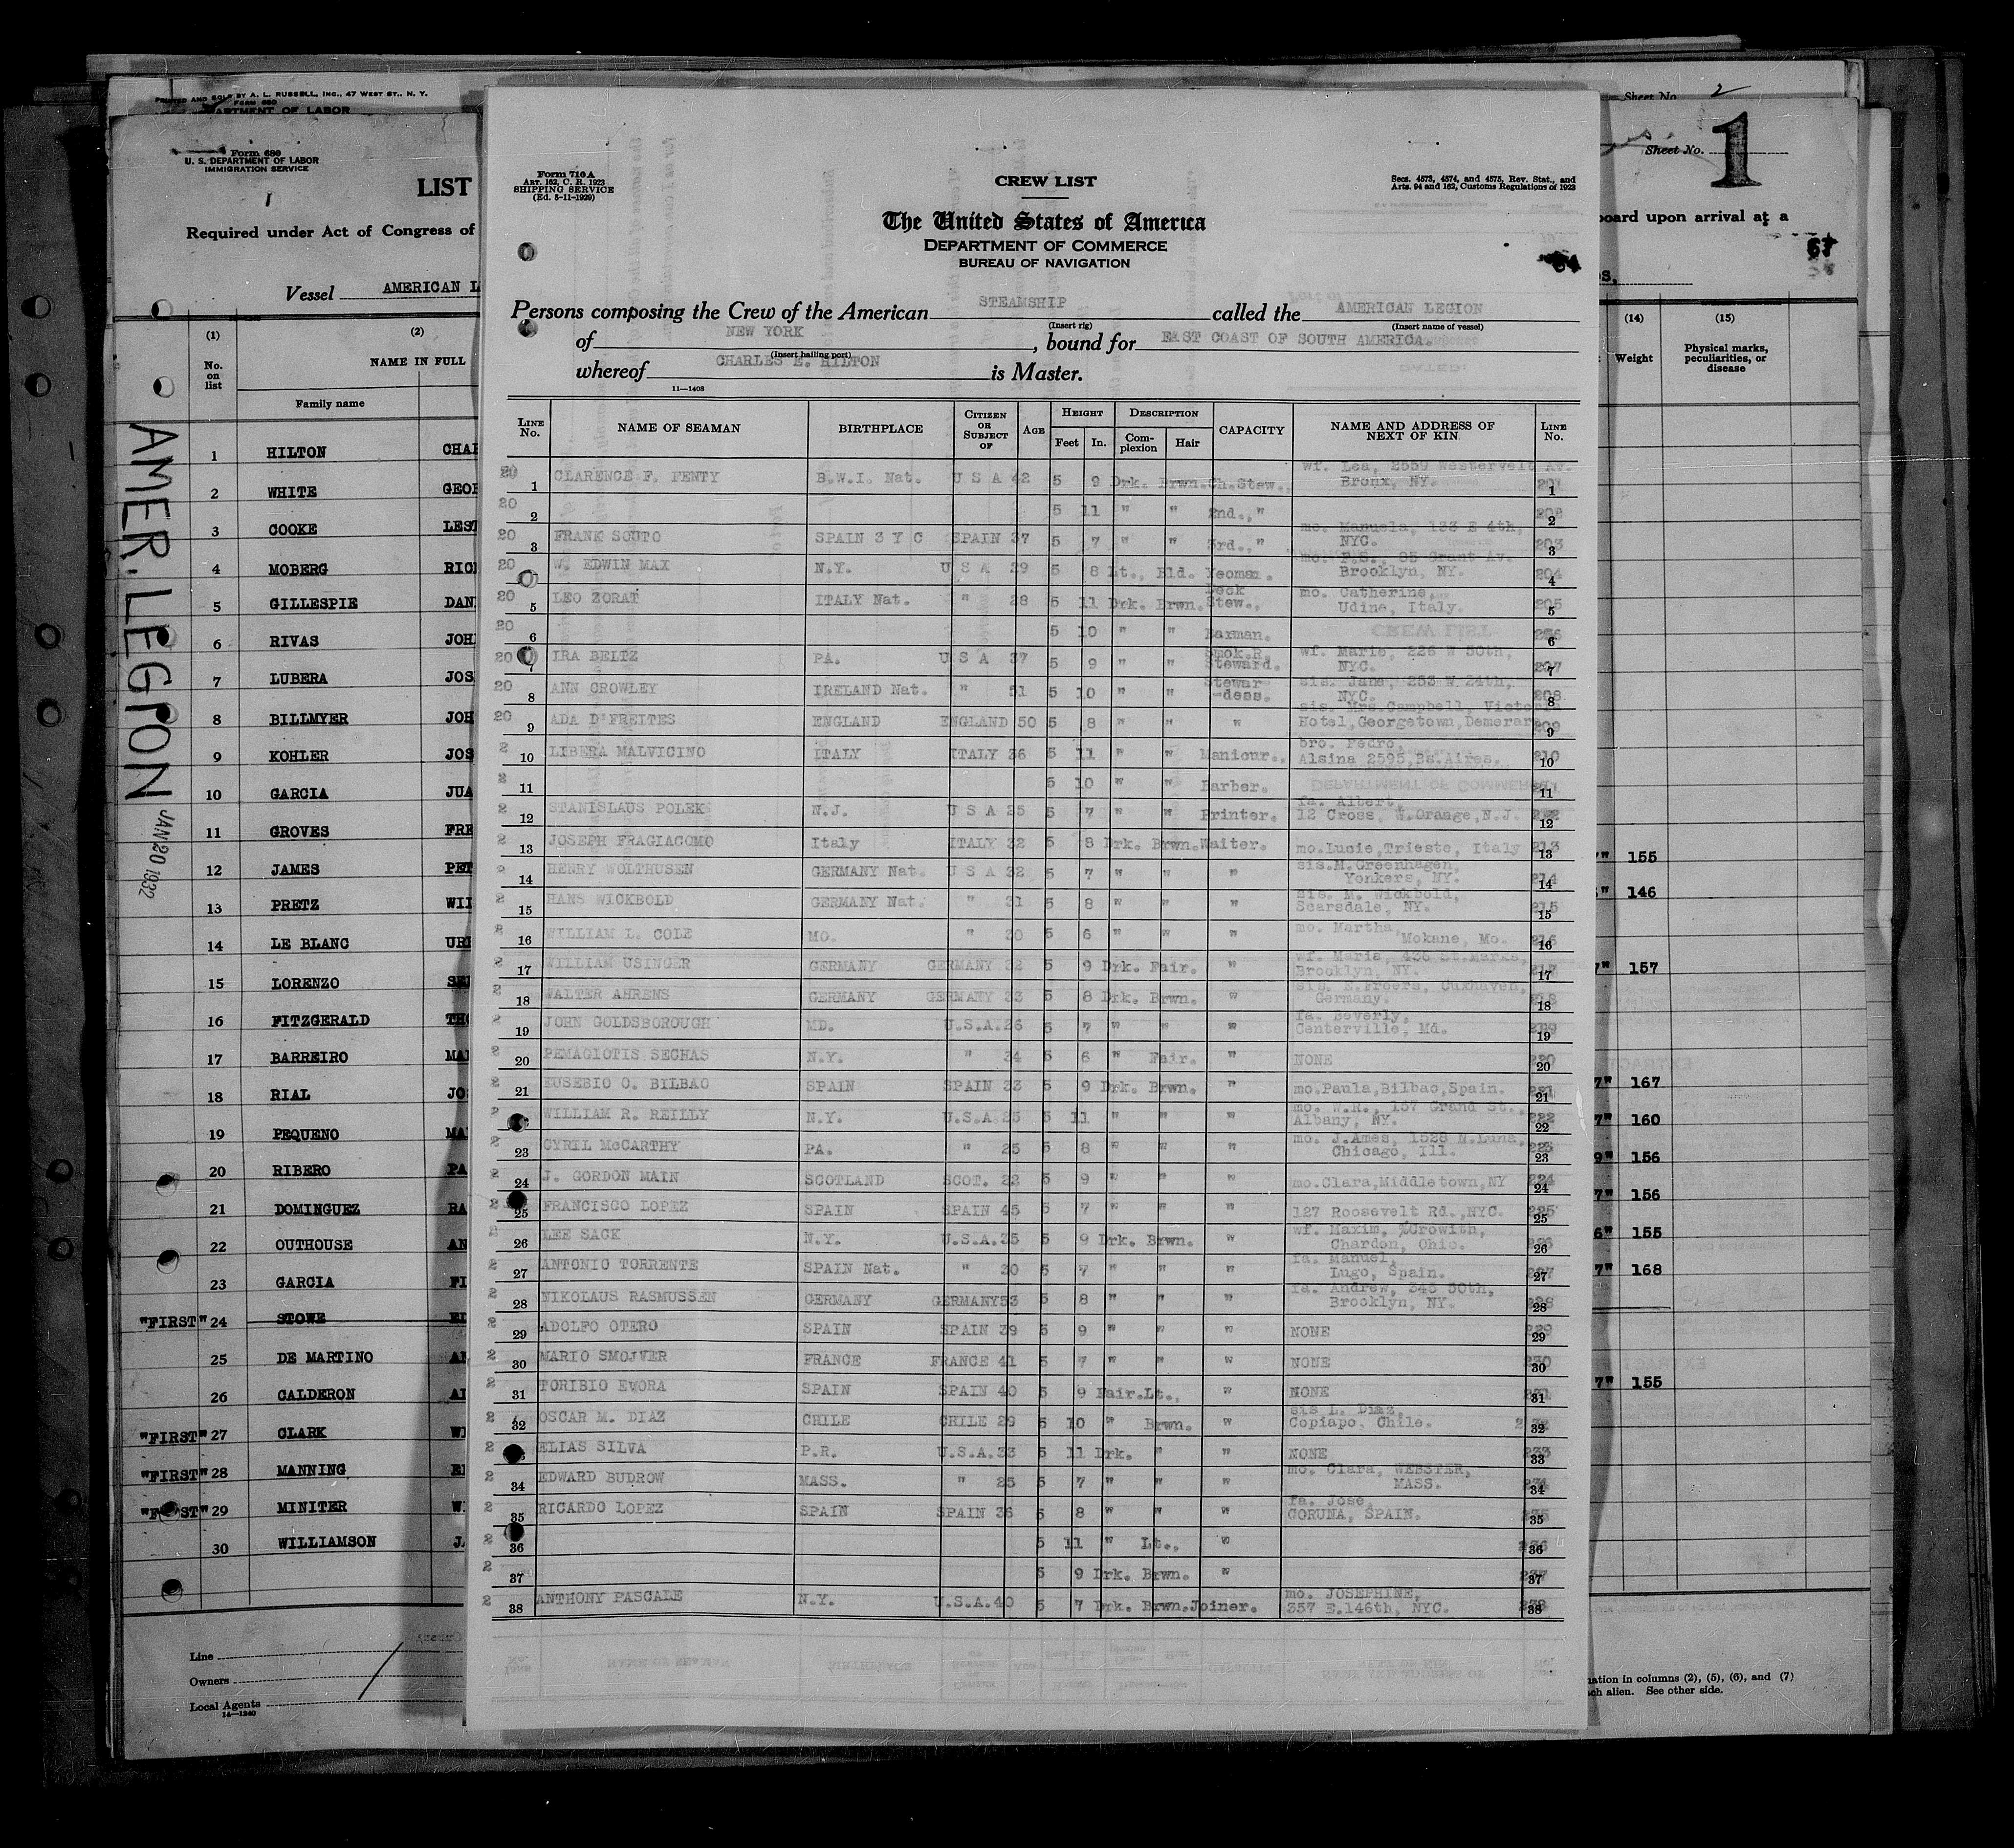 PRINTED AND SOLD BY A. L. RUSSELL, INC., 47 WEST ST., N. Y.
FORM 680
DEPARTMENT OF LABOR
Sheet No. 2
Form 680
U. S. DEPARTMENT OF LABOR
IMMIGRATION SERVICE
LIST
Required under Act of Congress of
Vessel AMERICAN L
Sheet No. 1
board upon arrival at a
67
(1) (2)
No. on list
NAME IN FULL
Family name
1 HILTON CHAR
2 WHITE GEOR
3 COOKE LEST
4 MOBERG RICH
5 GILLESPIE DAN
6 RIVAS JOH
7 LUBERA JOS
8 BILLMYER JOH
9 KOHLER JOS
10 GARCIA JUA
11 GROVES FRE
12 JAMES PET
13 PRETZ WIL
14 LE BLANC UR
15 LORENZO
16 FITZGERALD THO
17 BARREIRO MA
18 RIAL JO
19 PEQUENO MA
20 RIBERO PA
21 DOMINGUEZ RA
22 OUTHOUSE AN
23 GARCIA FI
"FIRST" 24 STOWE
25 DE MARTINO
26 CALDERON
"FIRST" 27 CLARK
"FIRST" 28 MANNING
"FIRST" 29 MINITER W
30 WILLIAMSON J
Line
Owners
Local Agents
14—1240
AMER. LEGION
JAN 20 1932
(14) (15)
Weight
Physical marks, peculiarities, or disease
155
146
157
167
160
156
156
155
168
155
mation in columns (2), (5), (6), and (7)
ch alien. See other side.
Form 710 A
ART. 162, C. R. 1923
SHIPPING SERVICE
(Ed. 5-11-1929)
CREW LIST
Secs. 4573, 4574, and 4575, Rev. Stat., and
Arts. 94 and 162, Customs Regulations of 1923
The United States of America
DEPARTMENT OF COMMERCE
BUREAU OF NAVIGATION
Persons composing the Crew of the American STEAMSHIP called the AMERICAN LEGION
(Insert rig) (Insert name of vessel)
of NEW YORK, bound for EAST COAST OF SOUTH AMERICA.
(Insert hailing port)
whereof CHARLES E. HILTON is Master.
11—1408
LINE No. NAME OF SEAMAN BIRTHPLACE CITIZEN OR SUBJECT OF AGE HEIGHT Feet In. DESCRIPTION Complexion Hair CAPACITY NAME AND ADDRESS OF NEXT OF KIN LINE No.
1 CLARENCE F. FENTY B.W.I. Nat. U S A 42 5 9 Drk. Brwn. Ch.Stew., wf. Lea, 2559 Westervelt Av. Bronx, NY. 201 1
2 5 11 " " 2nd.," 202 2
3 FRANK SOUTO SPAIN 3 Y C SPAIN 37 5 7 " " 3rd.," mo. Manuela, 133 E 4th, NYC. 203 3
4 W. EDWIN MAX N.Y. U S A 29 5 8 Lt., Bld. Yeoman. mo. F.S., 85 Grant Av. Brooklyn, NY. 204 4
5 LEO ZORAT ITALY Nat. " 28 5 11 Drk. Brwn. Deck Stew., mo. Catherine, Udine, Italy. 205 5
6 5 10 " " Barman. 206 6
7 IRA BELTZ PA. U S A 37 5 9 " " Smok.R. Steward. wf. Marie, 226 W 50th, NYC. 207 7
8 ANN CROWLEY IRELAND Nat. " 51 5 10 " " Stewar-dess. sis. Jane, 253 W 24th, NYC. 208 8
9 ADA D'FREITES ENGLAND ENGLAND 50 5 8 " " " sis. Mrs.Campbell, Victoria Hotel,Georgetown,Demerara 209 9
10 LIBERA MALVICINO ITALY ITALY 36 5 11 " " Manicur., bro. Pedro, Alsina 2595,Bs.Aires. 210 10
11 5 10 " " Barber. 11
12 STANISLAUS POLEKS N.J. U S A 25 5 7 " " Printer. fa. Albert, 12 Cross, W.Orange,N.J. 212 12
13 JOSEPH FRAGIACOMO Italy ITALY 32 5 8 Drk. Brwn. Waiter. mo.Lucie,Trieste, Italy 213 13
14 HENRY WOLTHUSEN GERMANY Nat. U S A 32 5 7 " " " sis.M.Greenhagen, Yonkers, NY. 214 14
15 HANS WICKBOLD GERMANY Nat. " 31 5 8 " " " sis. M. Wickbold, Scarsdale, NY. 215 15
16 WILLIAM L. COLE MO. " 30 5 6 " " " mo. Martha, Mokane, Mo. 216 16
17 WILLIAM USINGER GERMANY GERMANY 32 5 9 Drk. Fair. " wf. Maria, 436 St.Marks, Brooklyn, NY. 217 17
18 WALTER AHRENS GERMANY GERMANY 33 5 8 Drk. Brwn. " sis. E.Freers, Cuxhaven, Germany. 218 18
19 JOHN GOLDSBOROUGH MD. U.S.A. 26 5 7 " " " fa. Beverly, Centerville, Md. 219 19
20 PEMAGIOTIS SECHAS N.Y. " 34 5 6 " Fair. " NONE 220 20
21 EUSEBIO O. BILBAO SPAIN SPAIN 33 5 9 Drk. Brwn. " mo.Paula,Bilbao,Spain. 221 21
WILLIAM R. REILLY N.Y. U.S.A. 25 5 11 " " " mo. W.R., 137 Grand St., Albany, NY. 222 22
23 CYRIL McCARTHY PA. " 25 5 8 " " " mo. J.Ames, 1528 N.Luna, Chicago, Ill. 223 23
24 J. GORDON MAIN SCOTLAND SCOT. 22 5 9 " " " mo.Clara,Middletown,NY 224 24
25 FRANCISCO LOPEZ SPAIN SPAIN 45 5 7 " " " 127 Roosevelt Rd.,NYC. 225 25
26 LEE SACK N.Y. U.S.A. 35 5 9 Drk. Brwn. " wf. Maxim, %Crowith, Chardon, Ohio. 226 26
27 ANTONIO TORRENTE SPAIN Nat. " 30 5 7 " " " fa. Manuel, Lugo, Spain. 227 27
28 NIKOLAUS RASMUSSEN GERMANY GERMANY 53 5 8 " " " fa. Andrew, 345 50th, Brooklyn, NY. 228 28
29 ADOLFO OTERO SPAIN SPAIN 39 5 9 " " " NONE 229 29
30 MARIO SMOJVER FRANCE FRANCE 41 5 7 " " " NONE 230 30
31 TORIBIO EVORA SPAIN SPAIN 40 5 9 Fair. Lt., " NONE 231 31
32 OSCAR M. DIAZ CHILE CHILE 29 5 10 " Brwn. " sis L. Diaz, Copiapo, Chile. 32
ELIAS SILVA P.R. U.S.A. 33 5 11 Drk. " " NONE 233 33
34 EDWARD BUDROW MASS. " 25 5 7 " " " mo. Clara, WEBSTER, MASS. 234 34
35 RICARDO LOPEZ SPAIN SPAIN 36 5 8 " " " fa. Jose, CORUNA, SPAIN. 235 35
36 5 11 " Lt., " 236 36
37 5 9 Drk. Brwn. " 237 37
38 ANTHONY PASCALE N.Y. U.S.A. 40 5 7 Drk. Brwn. Joiner. mo. JOSEPHINE, 357 E.146th, NYC. 238 38